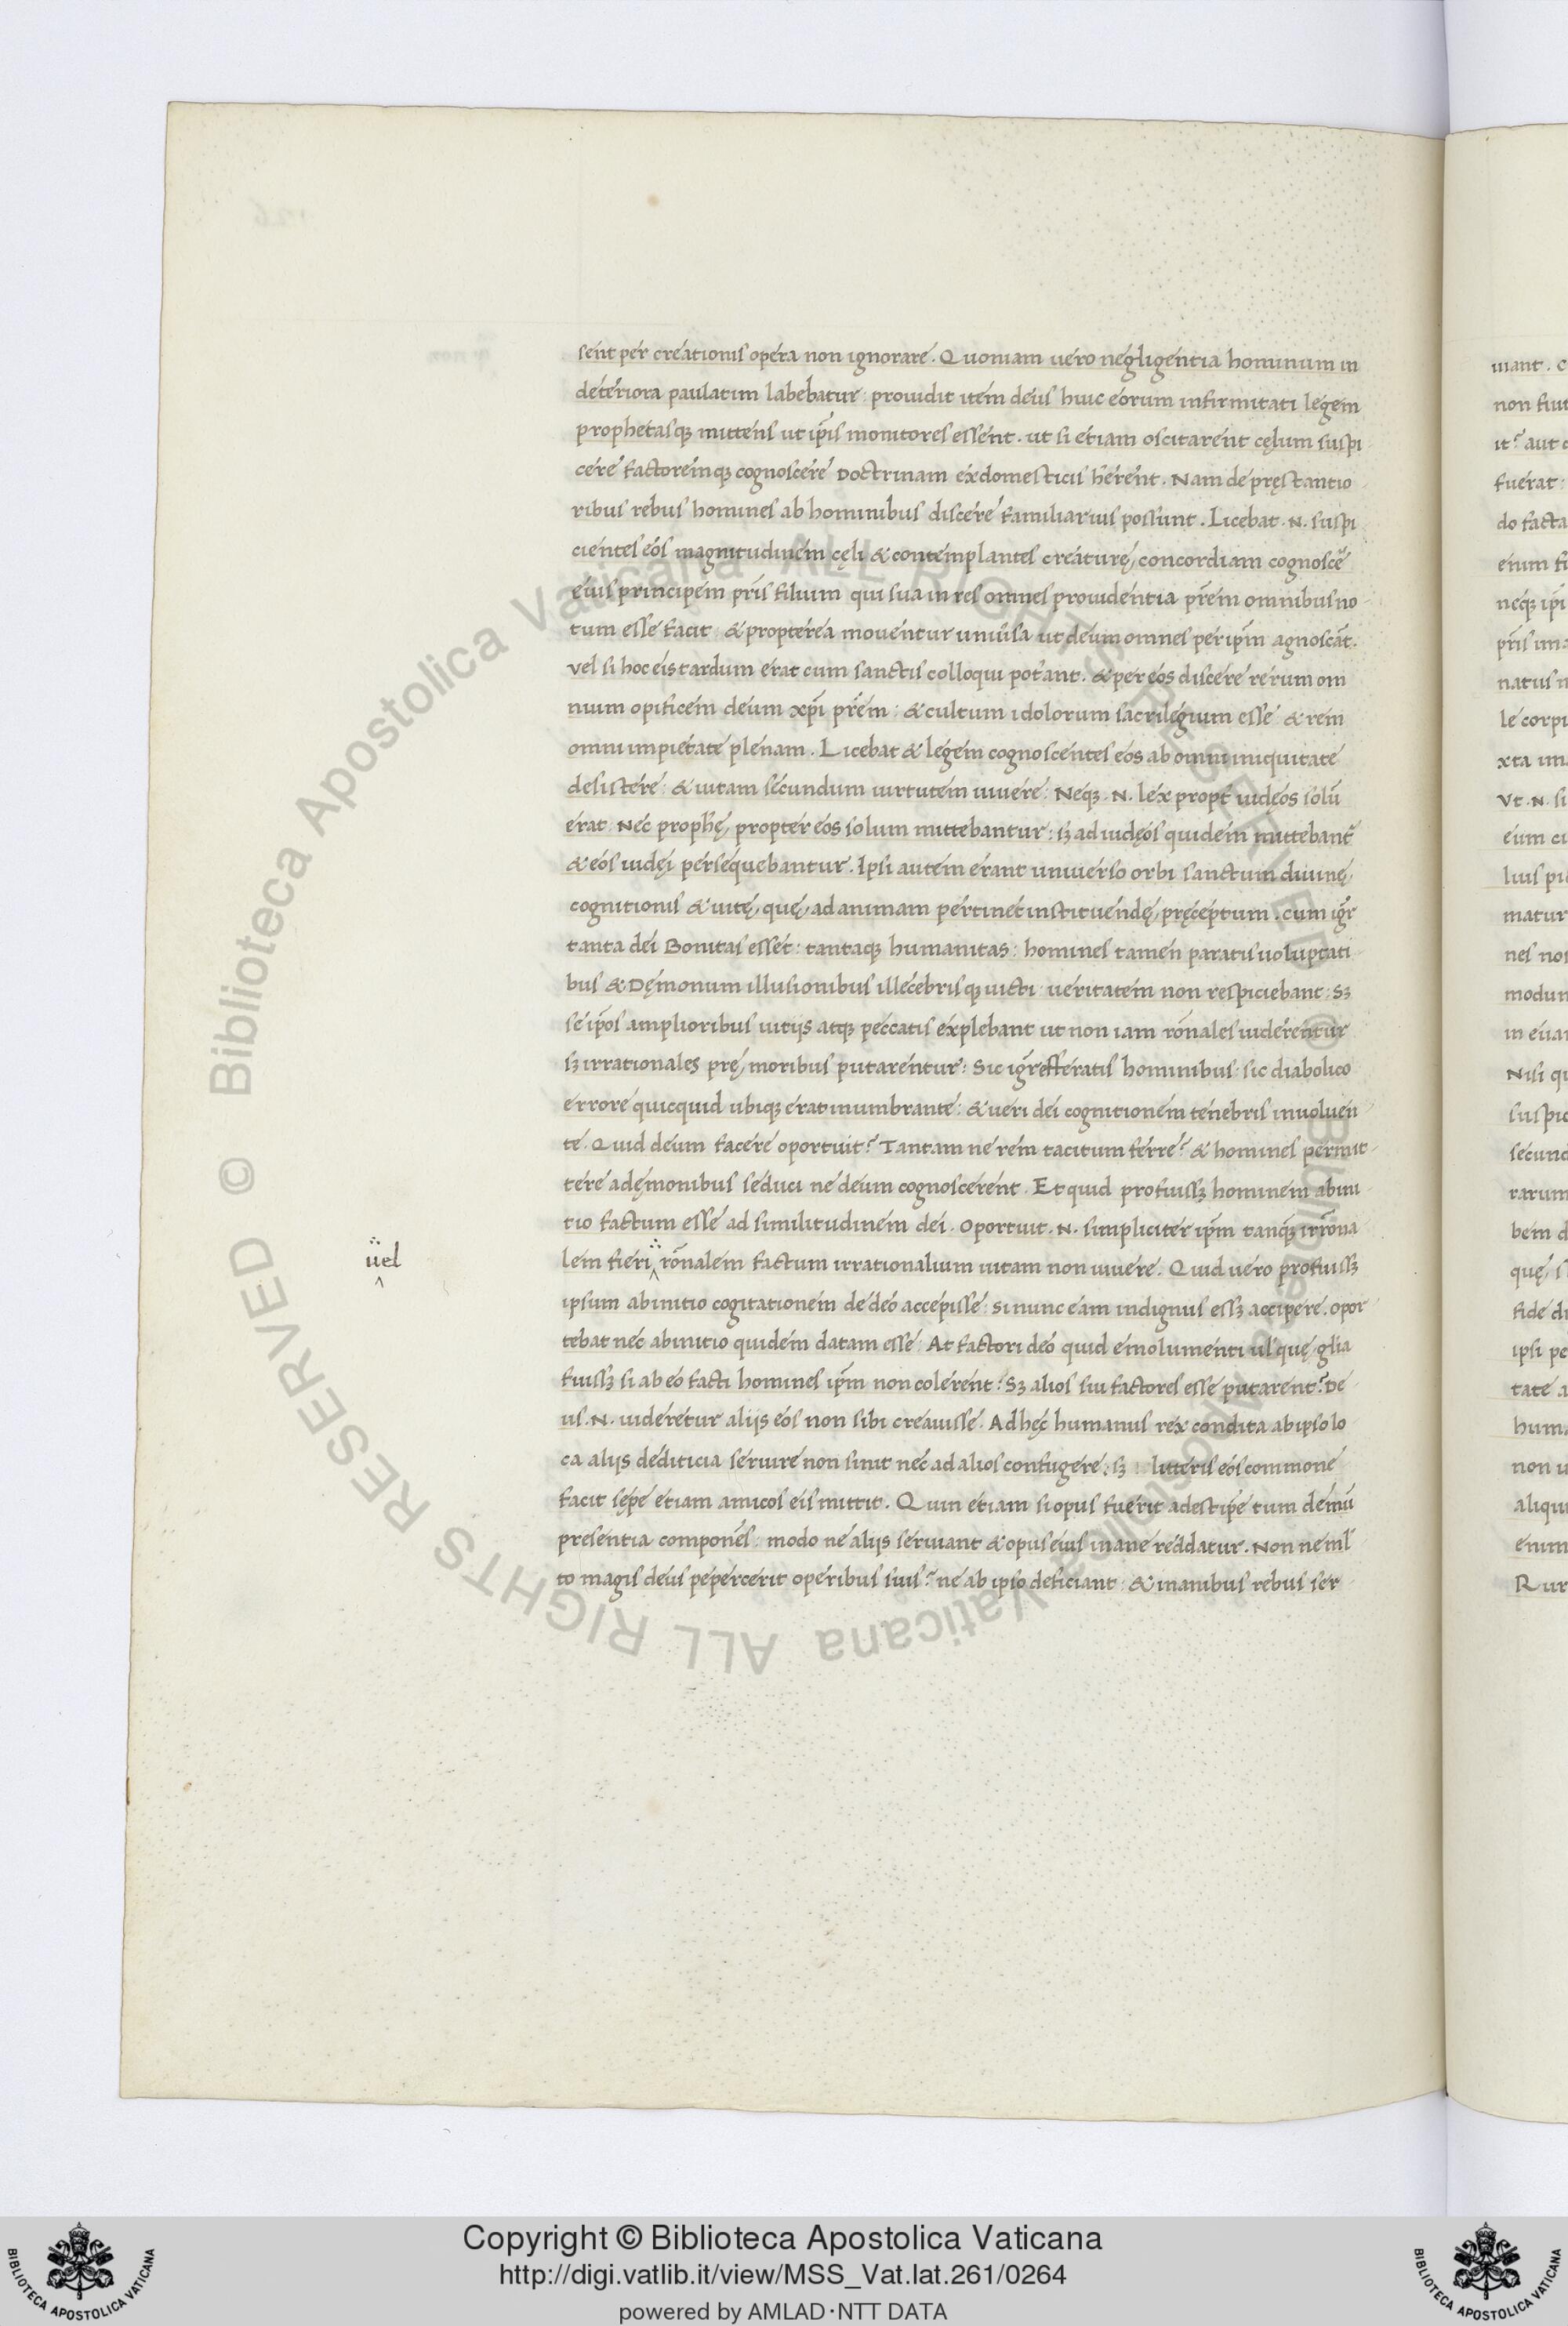 sent per creationis opera non ignorare. Quoniam uero negligentia hominum in
deteriora paulatim labebatur: prouidit item deus huic eorum infirmitati legem
prophetasq; mittens ut ip̄is monitores essent. ut si etiam oscitarent cęlum suspi
cere factoremq; cognoscere Doctrinam ex domesticis h̄erent. Nam de pręstantio
ribus rebus homines ab hominibus discere familiarius possunt. Licebat .N. suspi
cientes eos magnitudinem cęli & contemplantes creaturę concordiam cognosc̄e
eius principem pr̄is filium qui sua in res omnes prouidentia pr̄em omnibus no
tum esse facit: & propterea mouentur uniu̓sa ut deum omnes per ip̄m agnoscāt.
vel si hoc eis tardum erat cum sanctis colloqui pot̓ant. & per eos discere rerum om
nium opificem deum xp̄i pr̄em: & cultum idolorum sacrilegium esse & rem
omni impietate plenam. Licebat & legem cognoscentes eos ab omni iniquitate
desistere: & uitam secundum uirtutem uiuere: Neq; .N. lex propt̓ iudeos solū
erat: Nec proph̄ę propter eos solum mittebantur: sꝫ ad iudęos quidem mittebant᷑
& eos iudęi persequebantur. Ipsi autem erant uniuerso orbi sanctum diuinę
cognitionis & uitę, quę ad animam pertinet instituendę pręceptum. Cum iḡr
tanta dei Bonitas esset: tantaq; humanitas: homines tamen paratis uoluptati
bus & Dęmonum illusionibus illecebrisq; uicti ueritatem non respiciebant: Sꝫ
se ip̄os amplioribus uitijs atq; peccatis explebant ut non iam rōnales uiderentur
sꝫ irrationales prę moribus putarentur: Sic iḡr efferatis hominibus: sic diabolico
errore quicquid ubiq; erat inumbrante: & ueri dei cognitionem tenebris inuoluen
te. Quid deum facere oportuit? Tantam ne rem tacitum ferre? & homines permit
tere a dęmonibus seduci ne deum cognoscerent. Et quid profuissꝫ hominem ab ini
tio factum esse ad similitudinem dei. Oportuit .N. simpliciter ip̄m tanq̄ꝫ irrōna
üel
lem fieri rōnalem factum irrationalium uitam non uiuere. Quid uero profuissꝫ
ipsum ab initio cogitationem de deo accepisse: si nunc eam indignus essꝫ accipere. opor
tebat nec ab initio quidem datam esse: At factori deo quid emolumenti ul̓ quę gl̄ia
fuissꝫ si ab eo facti homines ip̄m non colerent? Sꝫ alios sui factores esse putarent? De
us .N. uideretur alijs eos non sibi creauisse. Ad hęc humanus rex condita ab ipso lo
ca alijs dediticia seruire non sinit nec ad alios confugere: sꝫ litteris eos commone
facit sępe etiam amicos eis mittit. Quin etiam si opus fuerit adest ip̄e tum demū
presentia compone᷒s: modo ne alijs seruiant & opus eius inane reddatur. Non ne ml̓
to magis deus pepercerit operibus suis? ne ab ipso deficiant: & inanibus rebus ser
Copyright © Biblioteca Apostolica Vaticana
http://digi.vatlib.it/view/MSS_Vat.lat.261/0264
powered by AMLAD·NTT DATA